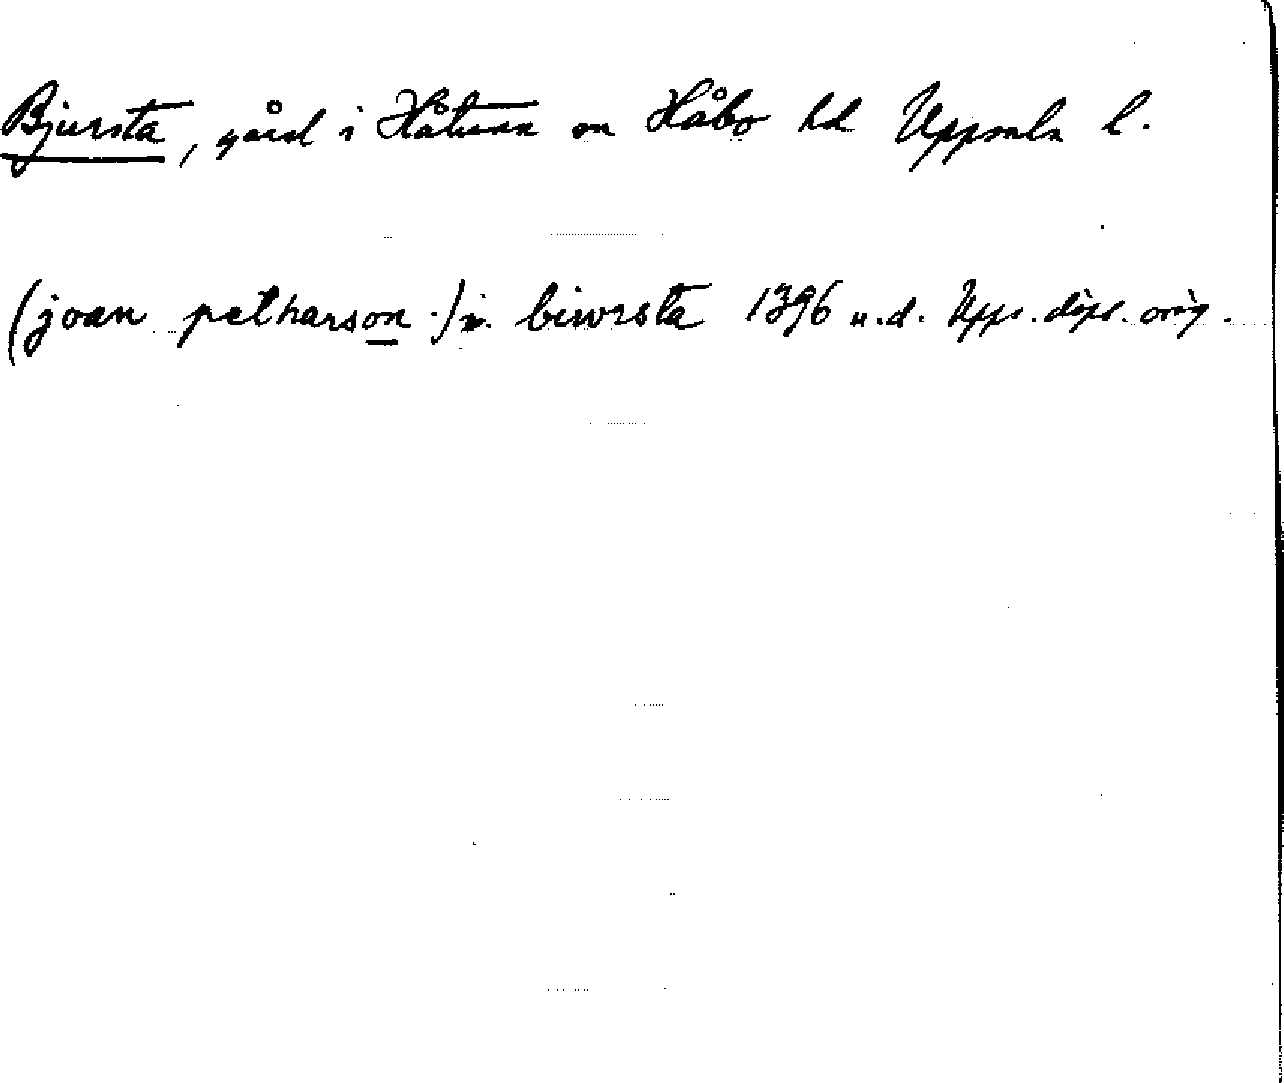 Bjursta, gård i Håtuna sn Håbo hd Uppsala l.
(joan petharson.) i biwrsta 1396 u.d. Upps. dipl. orig.